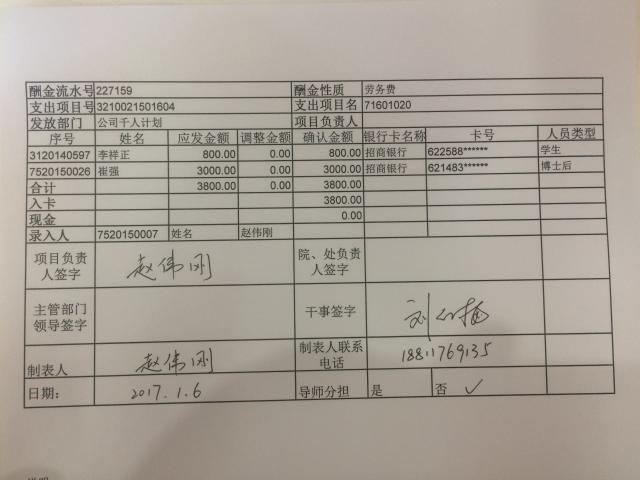 酬金流水号 227159 酬金性质 劳务费
支出项目号 3210021501604 支出项目名 71601020
发放部门 公司千人计划 项目负责人
序号 姓名 应发金额 调整金额 确认金额 银行卡名称 卡号 人员类型
3120140597 李祥正 800.00 0.00 800.00 招商银行 622588****** 学生
7520150026 崔强 3000.00 0.00 3000.00 招商银行 621483****** 博士后
合计 3800.00 0.00 3800.00
入卡 3800.00
现金 0.00
录入人 7520150007 姓名 赵伟刚
项目负责人签字 赵伟刚 院、处负责人签字
主管部门领导签字 干事签字 刘
制表人 赵伟刚 制表人联系电话 18811769135
日期: 2017.1.6 导师分担 是 否 ✓